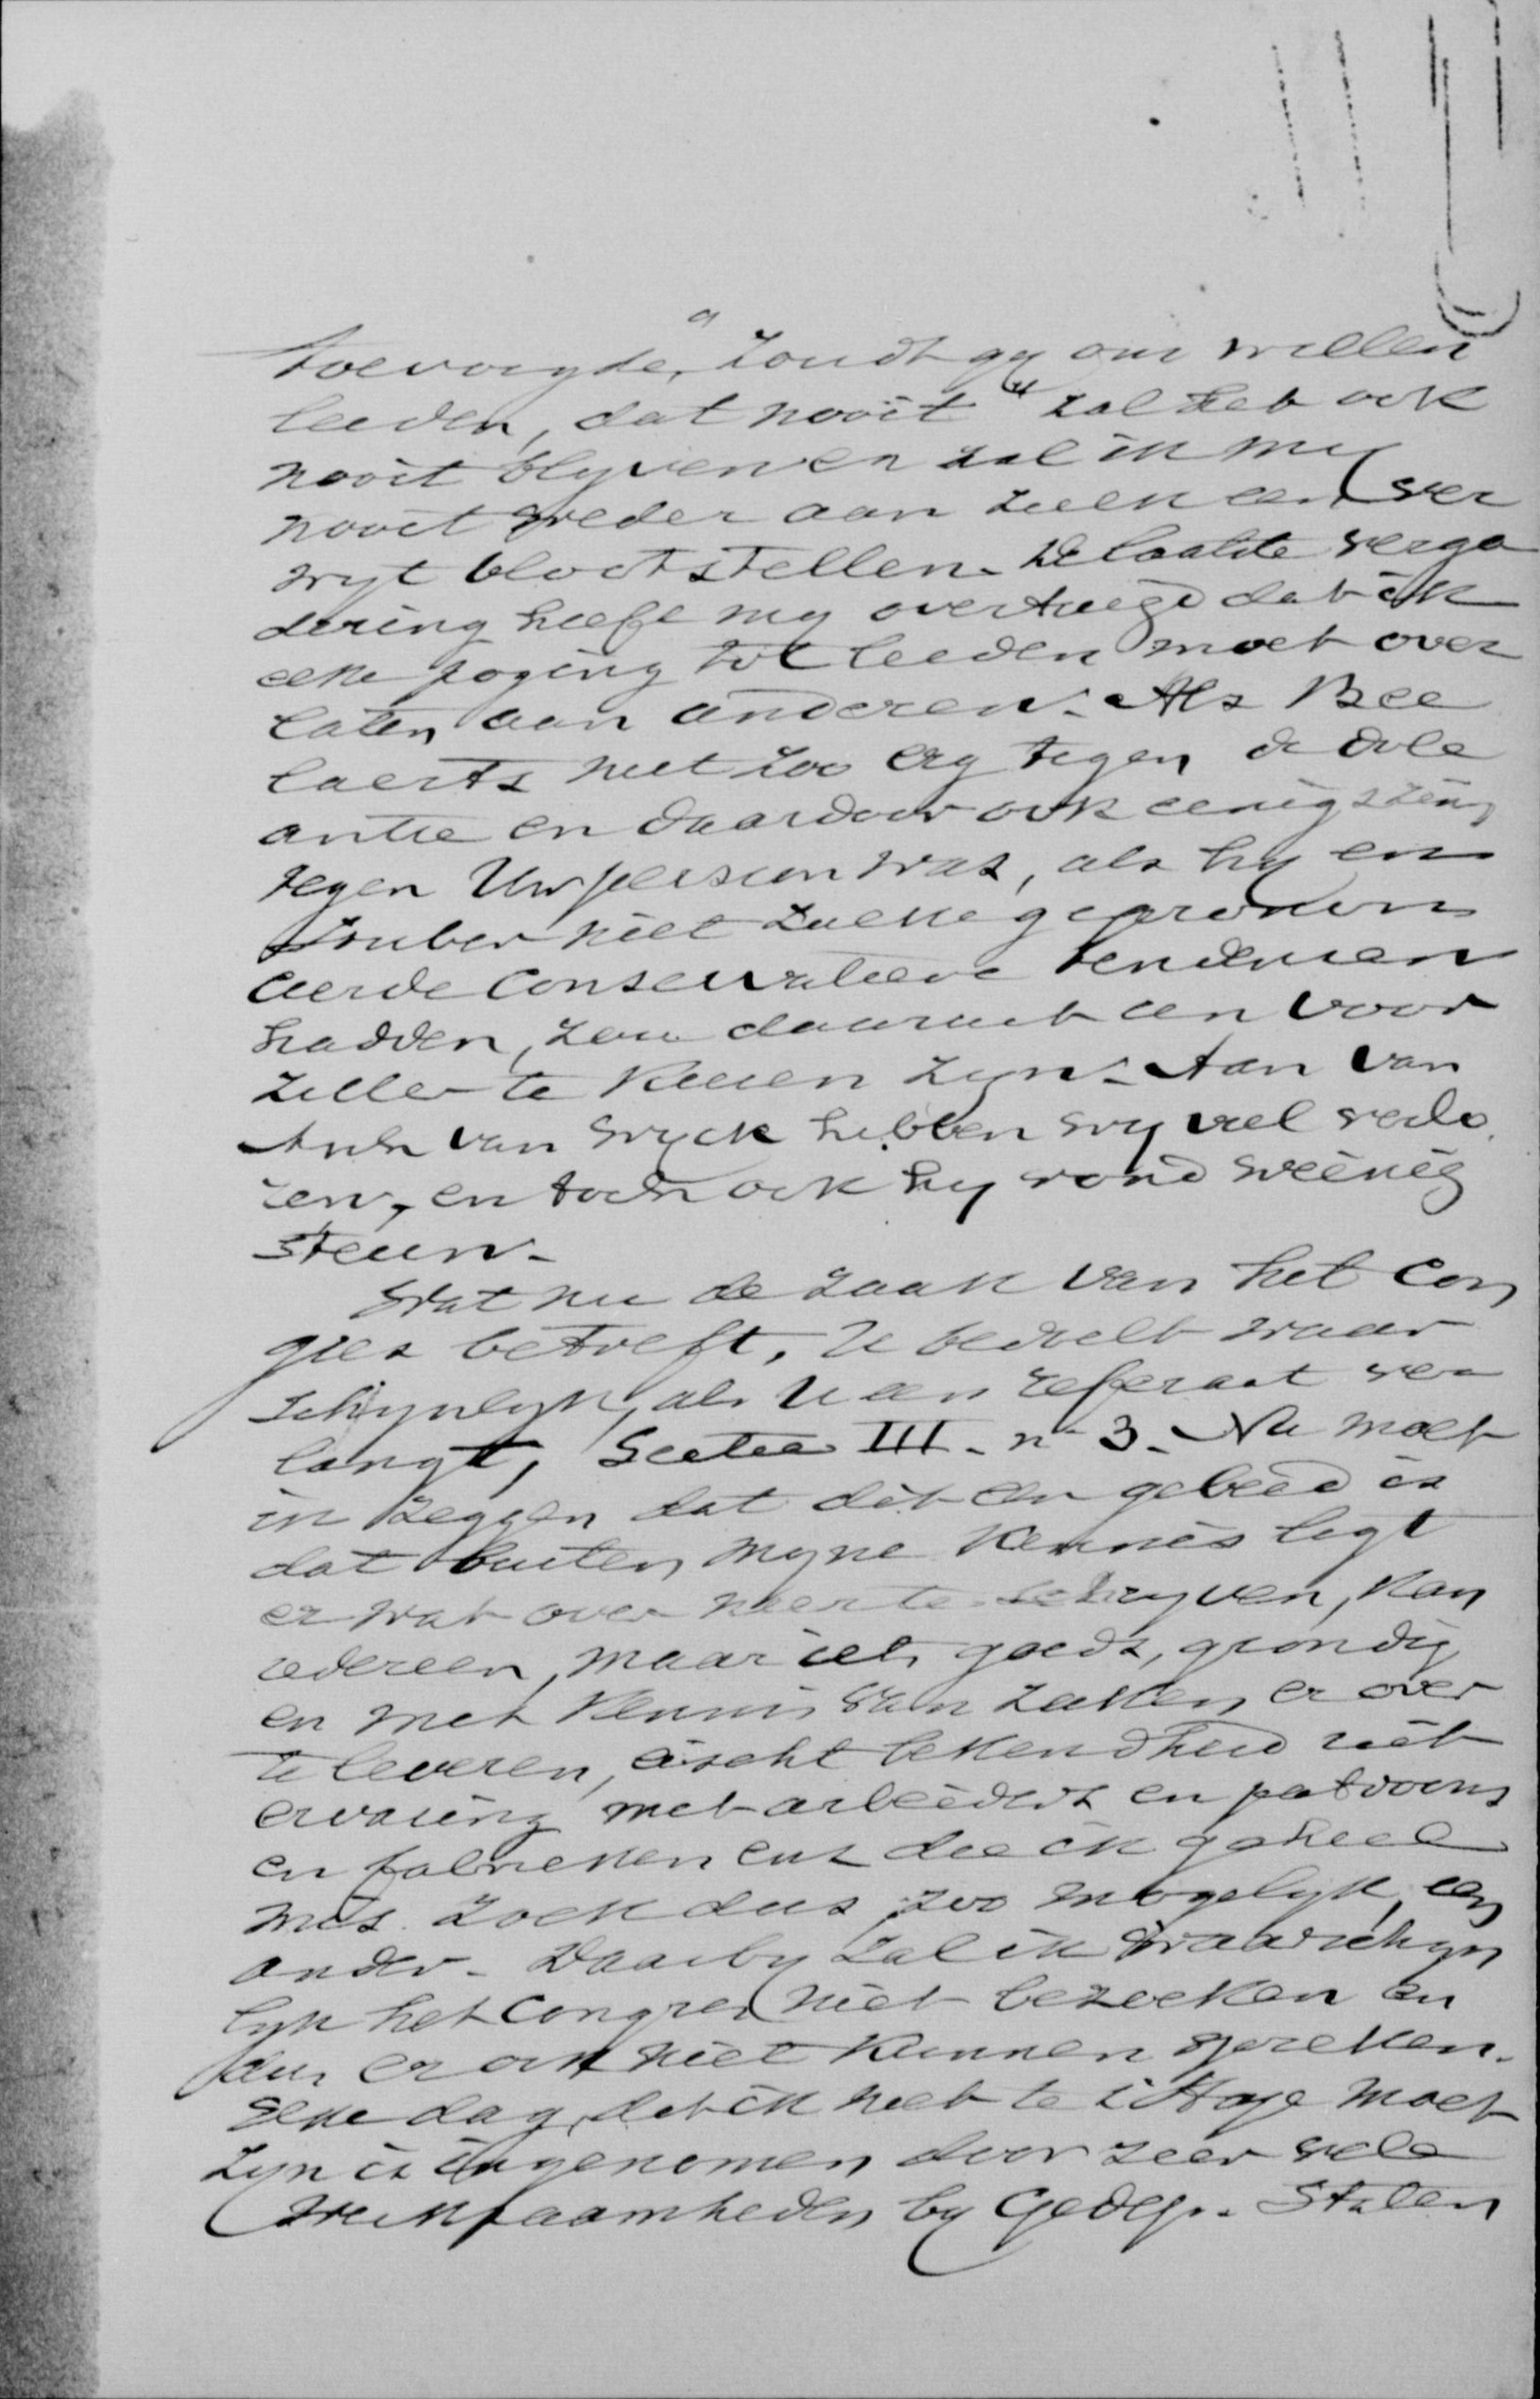 toevoegde, "Zoudt gy ons willen
leeden, dat nooit" zal het ook
nooit blyven en zal ik my
nooit weder aan zulk een ver
wyt blootstellen. De laatste verga
dering heeft my overtuigd dat ik
elke poging tot leeden moet over
laten aan anderen. Als Bee
laerts niet zoo erg tegen de dole
antie en daardoor ook eenigszins
tegen Uw persoon was, als hy en
Lynden niet zulke geprononc
ceerde conservatieve tendensen
hadden, zou daaruit een voor
zitter te kiezen zyn. Aan van
Asch van Wyck hebben wy veel verlo
ren, en toch ook hy vond weinig
steun.
Wat nu de zaak van het Con
gres betreft, U bedoelt waar
schynlyk, als U een referaat ver
langt, Sectie III. no 3. Nu moet
ik zeggen dat dit een gebied is
dat buiten myne kennis ligt
er wat over neer te schryven, kan
iedereen, maar iets goeds, grondig
en met kennis van zaken er over
te leveren, eischt bekendheid uit
ervaring met arbeiders en patroons
en fabrieken enz die ik geheel
mis. Zoek dus zoo mogelyk een
ander. Daarby zal ik waarschyn
lyk het Congres niet bezoeken en
dus er ook niet kunnen spreken.
Elke dag, dat ik niet te 's Hage moet
zyn is ingenomen door zeer vele
werkzaamheden by Gedep. Staten